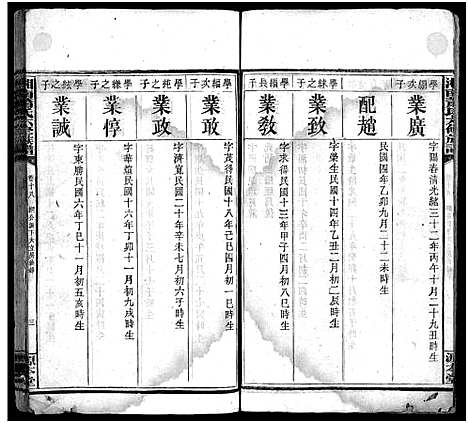 學綱次子
業廣
字陽春清光緒三十二年丙午十月二十九丑時生
配趙
民國四年乙卯九月二十二未時生
子之
業致
字榮生民國十四年乙丑二月初二辰時生
子長
業教
字求得民國十三年甲子四月初八巳時生
學 次子
業敢
字茂得民國十八年己巳四月初一巳時生
學苑之子
業政
字濟寬民國二十年辛未七月初六子時生
學 之子
業停
字華煊民國十六年丁卯十一月初九戌時生
學 之子
業誠
字東勝民國六年丁巳十一月初五亥時生
卷十八
三
源本堂